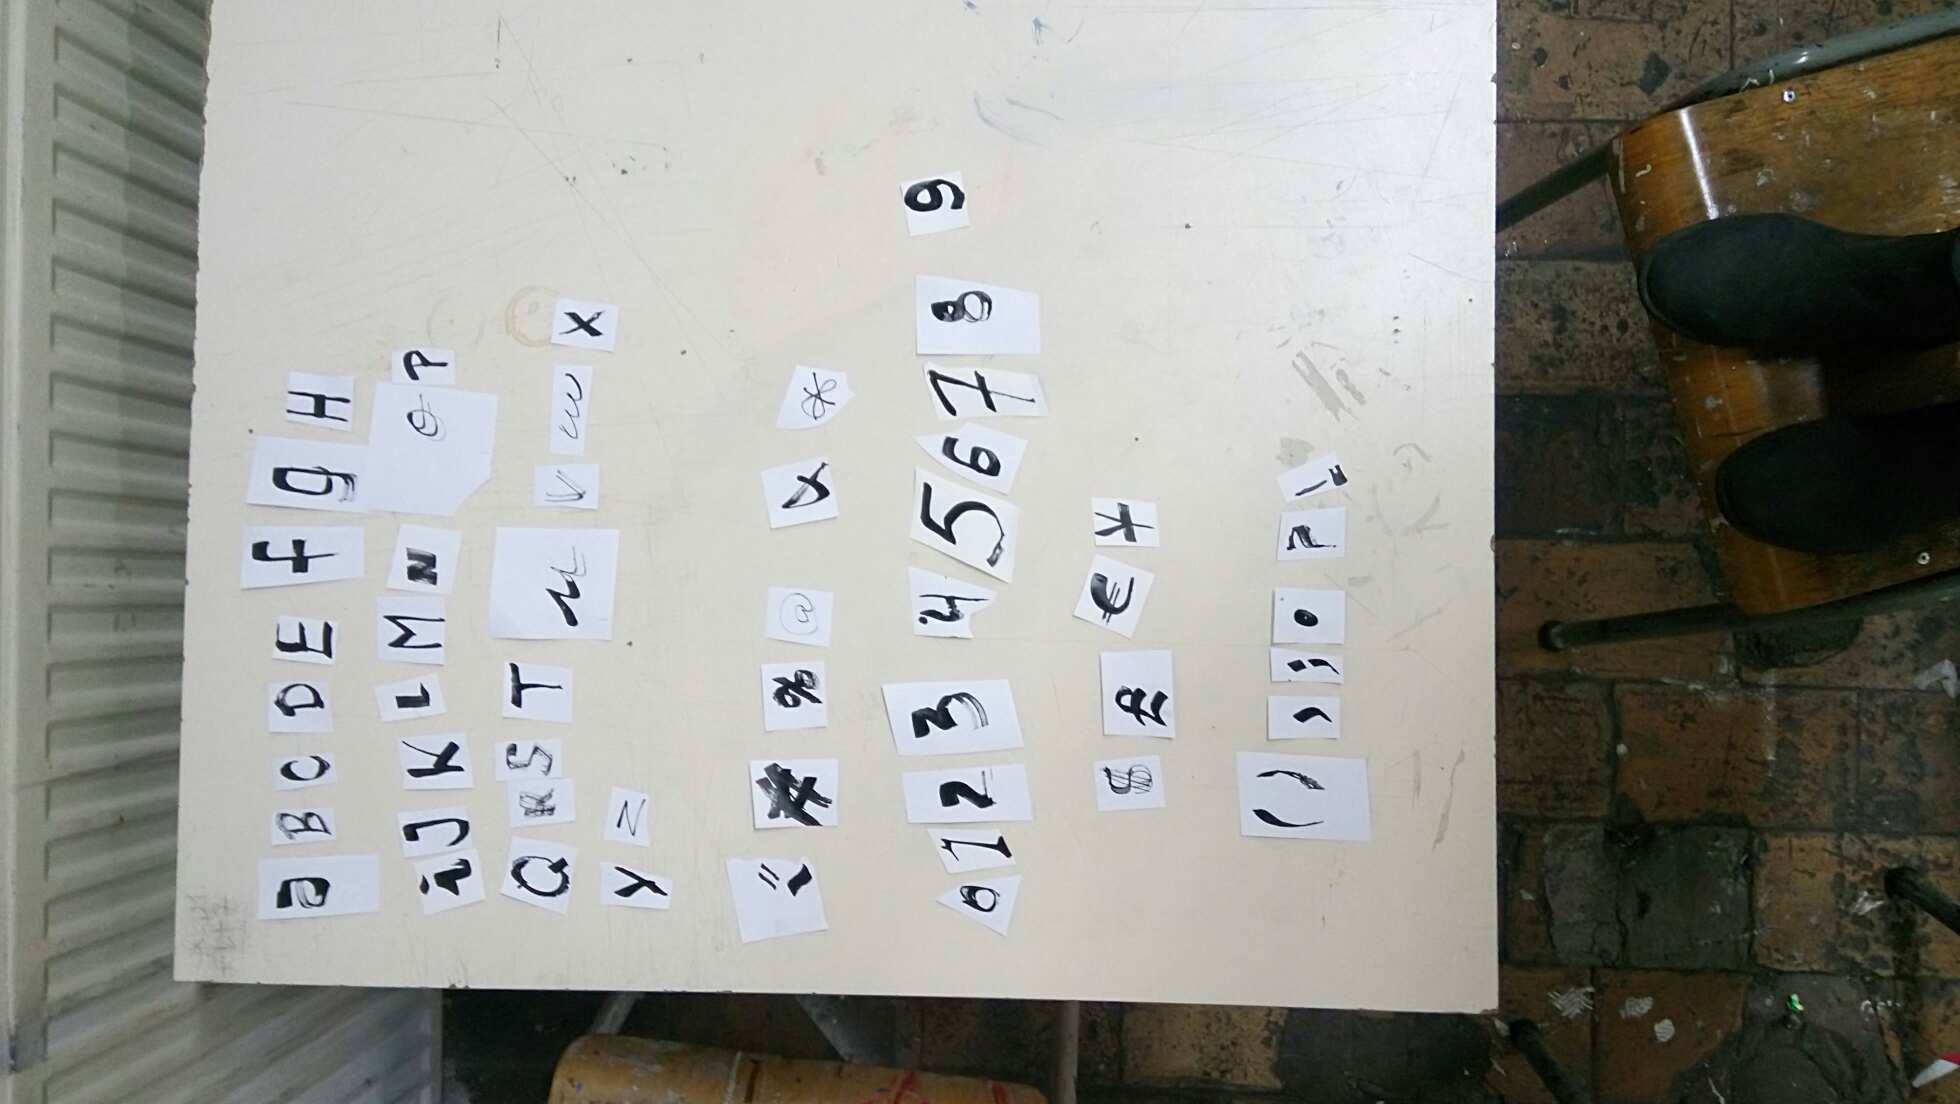 a B C D E f g H
i J K L M N O P
Q R S T u V w X
Y Z
# % @ & *
0 1 2 3 4 5 6 7 8 9
$ £ € ¥
( ) , ; . ? !